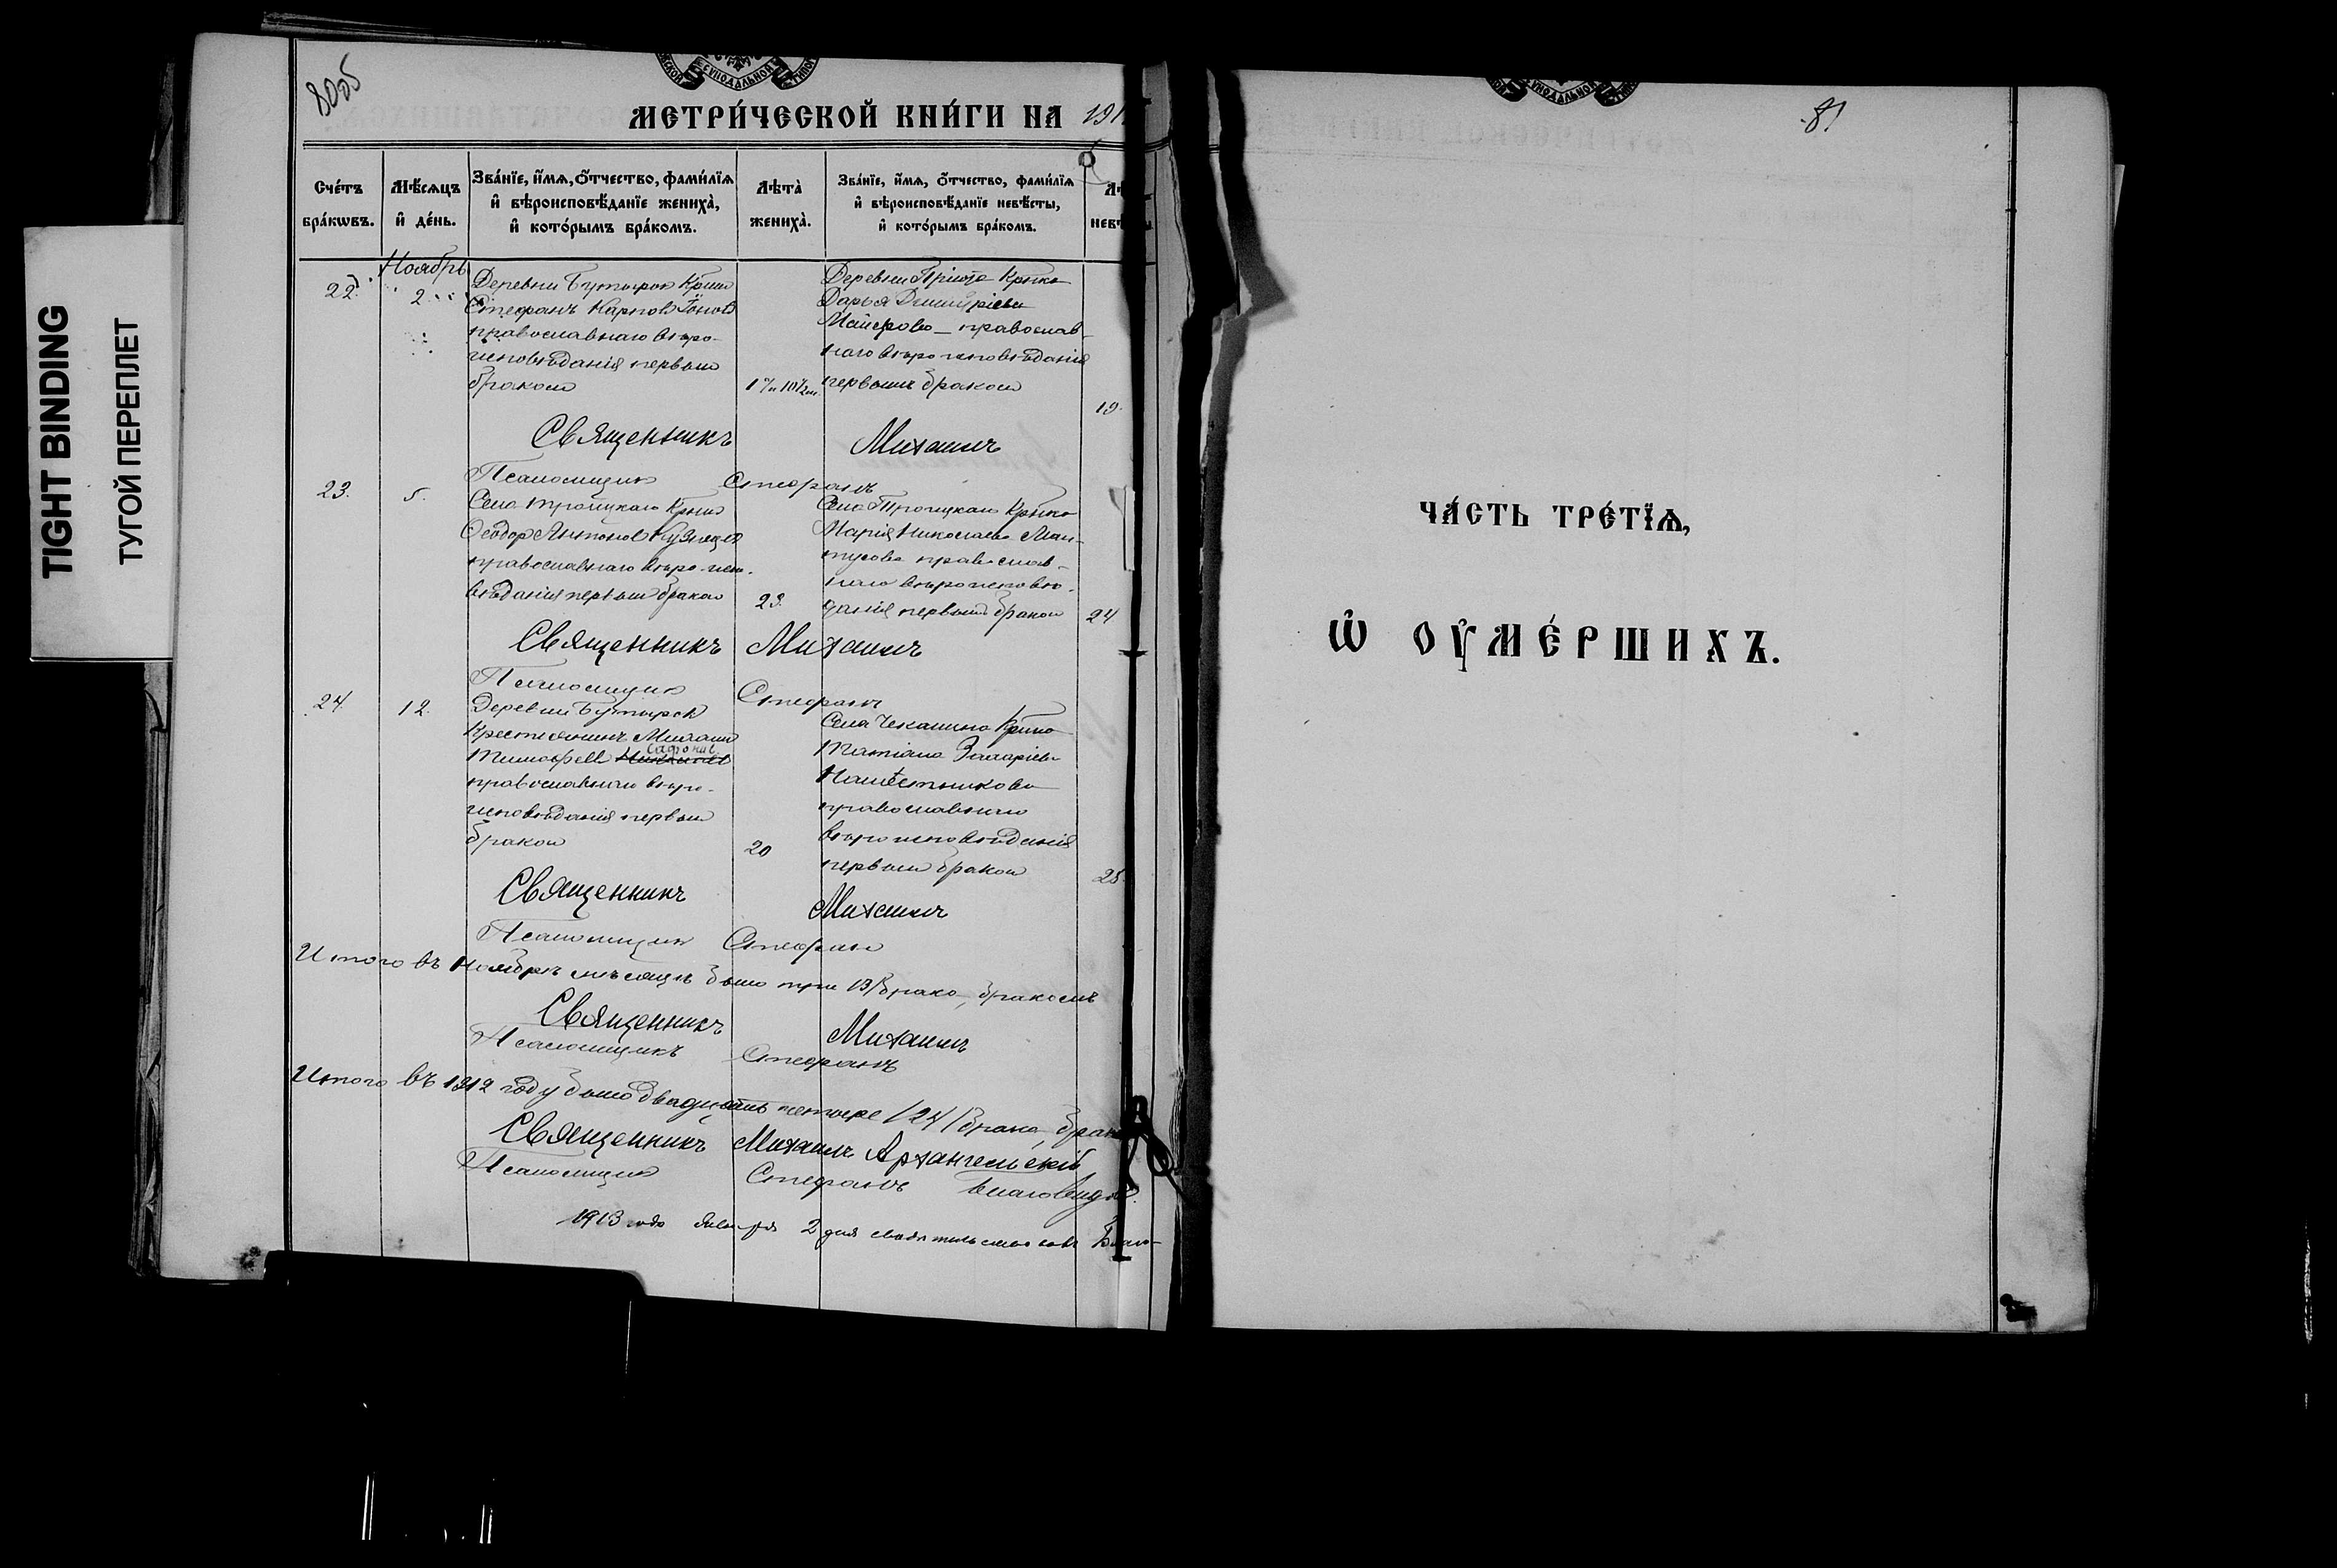 TIGHT BINDING
ТУГОЙ ПЕРЕПЛЕТ
80об
МЕТРИ́ЧЕСКОЙ КНИ́ГИ НА 191
Сче́тъ бра́кѡвъ.
Мѣ́сѧцъ и҆ де́нь.
Зва́нїе, и҆́мѧ, ѻ҆́тчество, фами́лїѧ и҆ вѣроисповѣ́данїе жениха̀, и҆ кото́рымъ бра́комъ.
Лѣта̀ жениха̀.
Зва́нїе, и҆́мѧ, ѻ҆́тчество, фами́лїѧ и҆ вѣроисповѣ́данїе невѣ́сты, и҆ кото́рымъ бра́комъ.
Лѣ
невѣ
Ноябрь
22.
2.
Деревни Бутырок
Стефанъ Карпов
православнаго вѣро-
исповѣданія первым
браком
Деревни
Дарья Димитріева
православ-
наго вѣроисповѣданія
первымъ браком
19.
Священникъ Михаилъ
Псаломщик Стефанъ
23.
5.
Села Троицкаго
Ѳеодор Антонов Кузнецов
православнаго вѣро-испо-
вѣданія первым браком
23.
Села Троицкаго
Марія Николаева Ман-
тусова православ-
наго вѣроисповѣ-
данія первым браком
24
Священникъ Михаилъ
Псаломщик Стефанъ
24.
12.
Деревни Бутырок
Крестьянинъ Михаил
Тимофеев
православнаго вѣро-
исповѣданія первым
браком
20
Села Чекалина
Татіана Захаріева
Намѣстникова
православнаго
вѣроисповѣданія
первым браком
25.
Священникъ Михаилъ
Псаломщик Стефан
Итого въ Ноябрѣ мѣсяцѣ было три /3/ брака, бракомъ
Священникъ Михаилъ
Псаломщикъ Стефанъ
Итого въ 1912 году было двадцать четыре /24/ брака,
Священникъ Михаилъ Архангельскій
Псаломщик Стефанъ
1913 года января 2 дня свидѣтельствовалъ Благо-
81
ЧА́СТЬ ТРЕ́ТЇѦ,
Ѡ҆ ОУ҆МЕ́РШИХЪ.